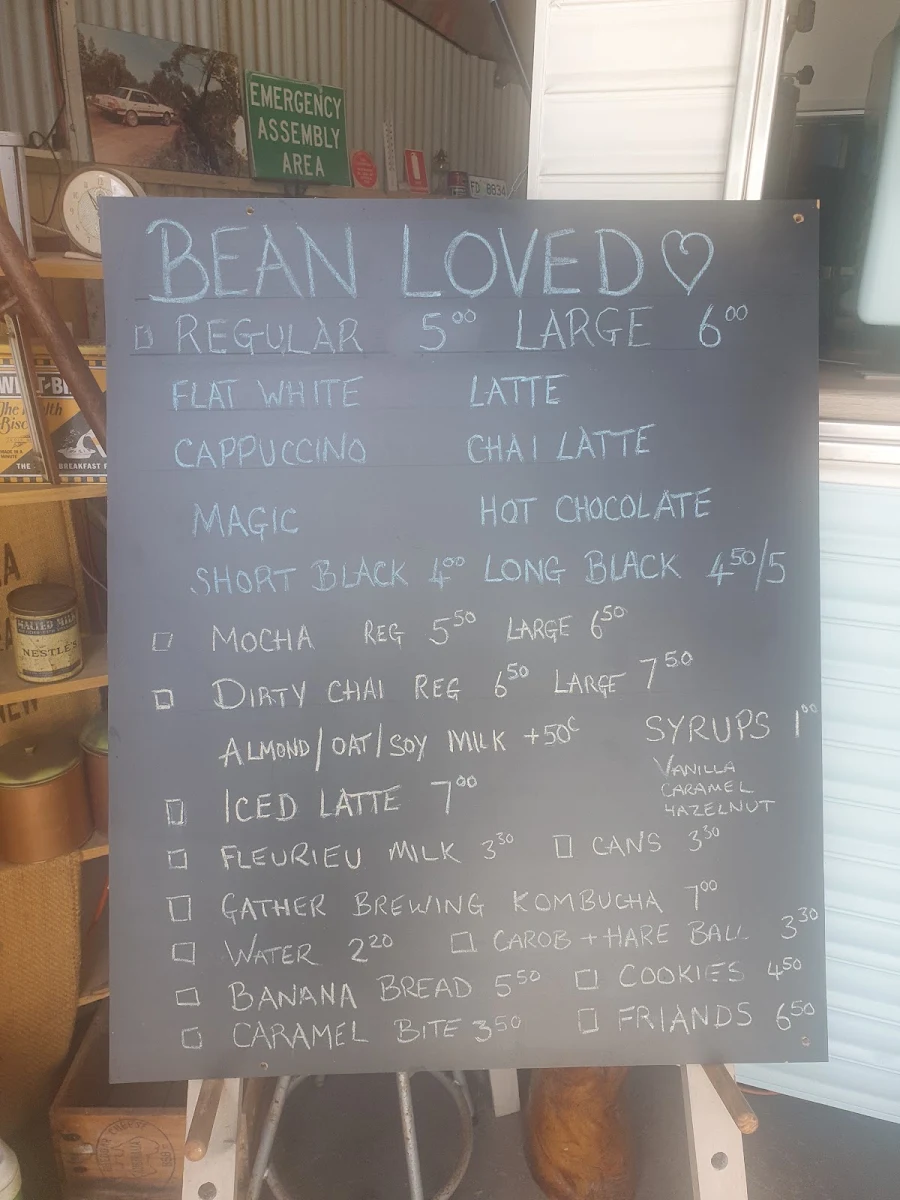 EMERGENCY
ASSEMBLY
AREA
FD 8834
BEAN LOVED
REGULAR 5.00 LARGE 6.00
FLAT WHITE LATTE
CAPPUCCINO CHAI LATTE
MAGIC HOT CHOCOLATE
SHORT BLACK 4.00 LONG BLACK 4.50/5
MOCHA REG 5.50 LARGE 6.50
DIRTY CHAI REG 6.50 LARGE 7.50
ALMOND/OAT/SOY MILK +50c
SYRUPS 1.00
VANILLA
CARAMEL
HAZELNUT
ICED LATTE 7.00
FLEURIEU MILK 3.30 CANS 3.30
GATHER BREWING KOMBUCHA 7.00
WATER 2.20 CAROB + HARE BALL 3.30
BANANA BREAD 5.50 COOKIES 4.50
CARAMEL BITE 3.50 FRIANDS 6.50
BREAKFAST
MALTED MILK
NESTLÉ'S